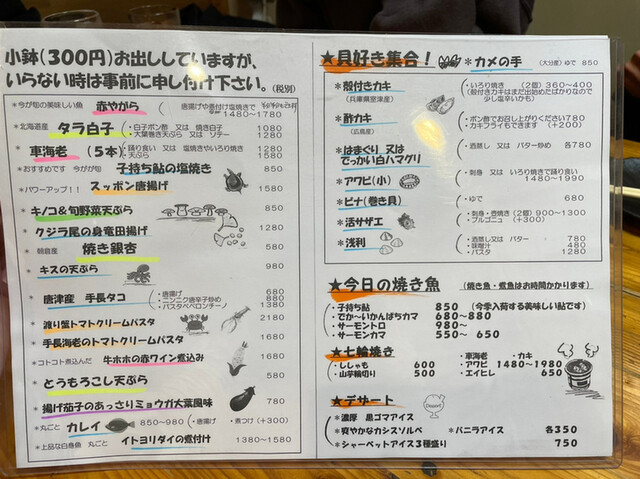 小鉢(300円)お出ししていますが、
いらない時は事前に申し付け下さい。(税別)
*今が旬の美味しい魚 赤やがら 唐揚げや煮付け塩焼きで
1480～1780
*北海道産 タラ白子 ・白子ポン酢 又は 焼き白子 1080
・大葉巻き天ぷら 又は ソテー 1280
*車海老 (5本) ・踊り食い 又は 塩焼きやいろり焼き 1380
・天ぷら 1580
*おすすめです 今が旬 子持ち鮎の塩焼き 850
*パワーアップ!! スッポン唐揚げ 850
*キノコ&旬野菜天ぷら 850
*クジラ尾の身竜田揚げ 1280
*朝倉産 焼き銀杏 580
*キスの天ぷら 980
*唐津産 手長タコ ・唐揚げ 680
・ニンニク唐辛子炒め 880
・パスタペペロンチーノ 1380
*渡り蟹トマトクリームパスタ 2180
*手長海老のトマトクリームパスタ 1680
*コトコト煮込んだ 牛ホホの赤ワイン煮込み 1680
*とうもろこし天ぷら 580
*揚げ茄子のあっさりミョウガ大葉風味 780
*丸ごと カレイ 850～980 ・唐揚げ ・煮つけ (+300)
*上品な白身魚 丸ごと イトヨリダイの煮付け 1380～1580
★貝好き集合! *カメの手 (大分産) ゆで 850
*殻付きカキ ・いろり焼き (2個) 360～400
(兵庫県室津産) (殻付きカキはまだ出始めたばかりなので
少し塩辛いかも)
*酢カキ ・ポン酢でお召し上がりください 780
(広島産) ・カキフライもできます (+200)
*はまぐり 又は ・酒蒸し 又は バター炒め 各780
でっかい白ハマグリ
*アワビ(小) ・刺身 又は いろり焼きで踊り食い
1480～1980
*ビナ(巻き貝) ・ゆで 680
*活サザエ ・刺身・壺焼き(2個) 900～1300
・ブルゴニュ (+300)
*浅利 ・酒蒸し又は バター 780
・味噌汁 480
・パスタ 980
★今日の焼き魚 (焼き魚・煮魚はお時間かかります)
・子持ち鮎 850 (今季入荷する美味しい鮎です)
・でか～いかんぱちカマ 680～880
・サーモントロ 980～
・サーモンカマ 550～ 650
★七輪焼き ・車海老 ・カキ
・ししゃも 600 ・アワビ 1480～1980
・山芋輪切り 500 ・エイヒレ 650
★デザート
*濃厚 黒ゴマアイス
*爽やかなカシスソルベ *バニラアイス 各350
*シャーベットアイス3種盛り 750